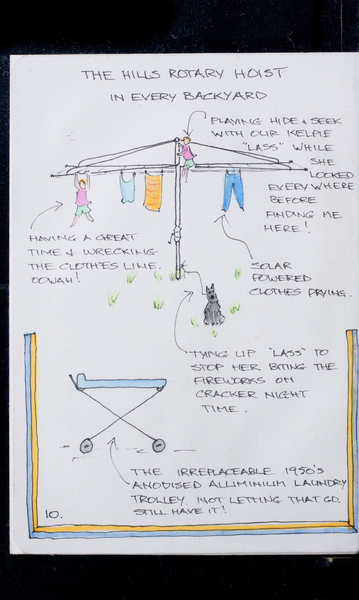 THE HILLS ROTARY HOIST
IN EVERY BACKYARD
PLAYING HIDE & SEEK
WITH OUR KELPIE
"LASS" WHILE
SHE
LOOKED
EVERYWHERE
BEFORE
FINDING ME
HERE!
HAVING A GREAT
TIME & WRECKING
THE CLOTHES LINE.
OOWAH!
SOLAR
POWERED
CLOTHES DRYING.
TYING UP "LASS" TO
STOP HER BITING THE
FIREWORKS ON
CRACKER NIGHT
TIME.
THE IRREPLACEABLE 1950'S
ANODISED ALLIMINIUM LAUNDRY
TROLLEY. NOT LETTING THAT GO.
STILL HAVE IT!
10.